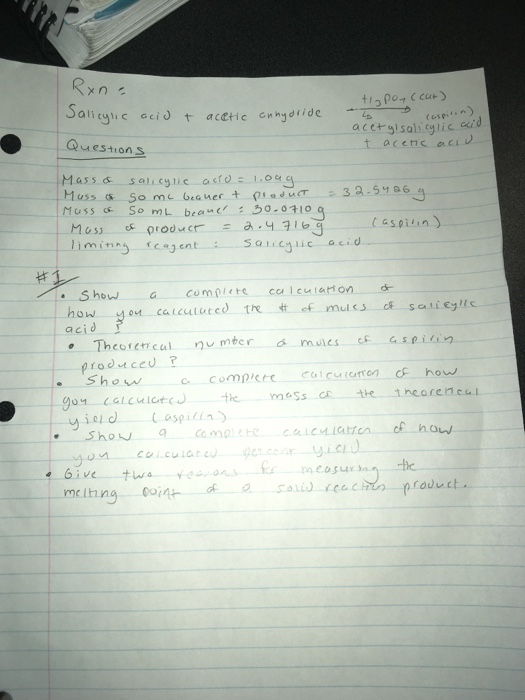 Rxn :
Salicylic acid + acetic anhydride H3PO4 (cat) acetylsalicylic acid (aspirin)
+ acetic acid
Questions
Mass of salicylic acid =
Mass of 50 mL beaker + product = 32.5426 g
Mass of 50 mL beaker : 30.0710 g
Mass of product = 2.4716 g (aspirin)
limiting reagent : salicylic acid
#1
• Show a complete calculation of
how you calculated the # of moles of salicylic
acid ?
• Theoretical number of moles of aspirin
produced ?
• Show a complete calculation of how
you calculated the mass of the theoretical
yield (aspirin)
• Show a complete calculation of how
you calculated percent yield
• Give two reasons for measuring the
melting point of a solid reaction product.